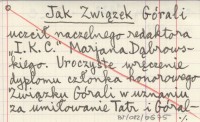 Jak Związek Górali
uczcił naczelnego redaktora
"I.K.C." Marjana Dąbrows-
kiego. Uroczyste wręczenie
dyplomu członka honorowego
Związku Górali w uznaniu
za umiłowanie Tatr i Góral-